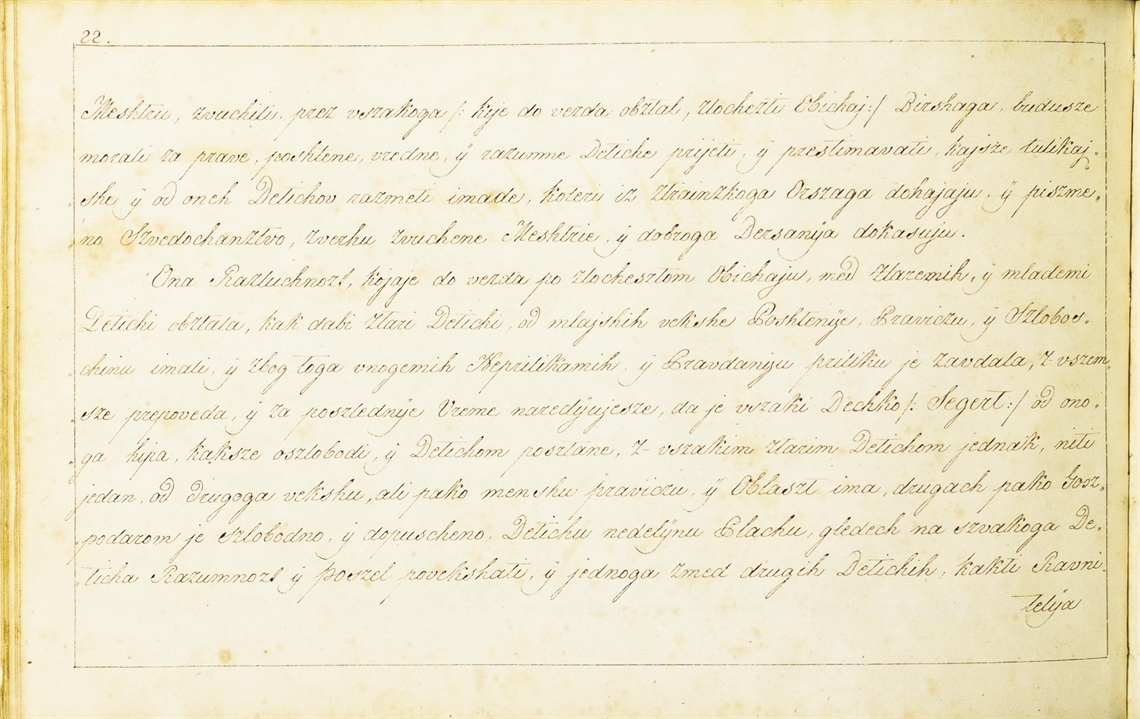 22.
Meshtru, zvuchiti, prez vszakoga /: kije do vezda obztal, zlochezti Obichaj :/ Birshaga, budusze
morali za prave, poshtene, vredne, ÿ razumne Detiche prijeti, ÿ prestimavati, kajsze tulikaj-
she ÿ od oneh Detichov razmeti imade, koteri iz ztrainzkoga Orszaga dohajaju, ÿ piszme„
no Szvedochanztvo, zverhu zvuchene Meshtrie, ÿ dobroga Dersanÿa dokasuju.
Ona Razluchnozt, kojaje do vezda po zlochesztom Obichaju, med ztaremih, ÿ mlademi
Detichi obztala, kak dabi ztari Detichi, od mlajshih vekshe Poshtenÿe, Praviczu, ÿ Szlobos-
chinu imali, ÿ zbog toga vnogemih Neprilikamih, ÿ Pravdanÿu priliku je zavdala, z vszem
sze prepoveda, ÿ za poszlednÿe Vreme naredÿujesze, da je vszaki Dechko /: Segert :/ od ono-
ga hipa, kaksze oszlobodi, ÿ Detichom posztane, z-vszakim ztarim Detichom jednak, niti
jedan, od drugoga vekshu, ali pako menshu praviczu, ÿ Oblaszt ima, drugach pako Gosz„
podarom je szlobodno, ÿ dopuscheno, Detichu nedelÿnu Plachu, gledech na szvakoga De-
ticha Razumnozt ÿ Poszel povekshati, ÿ jednoga zmed drugih Detichih, kakti Ravni-
telÿa